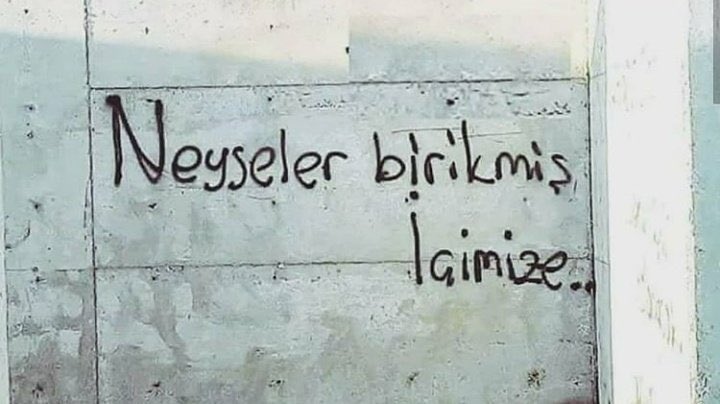 Neyseler birikmiş
İcimize..